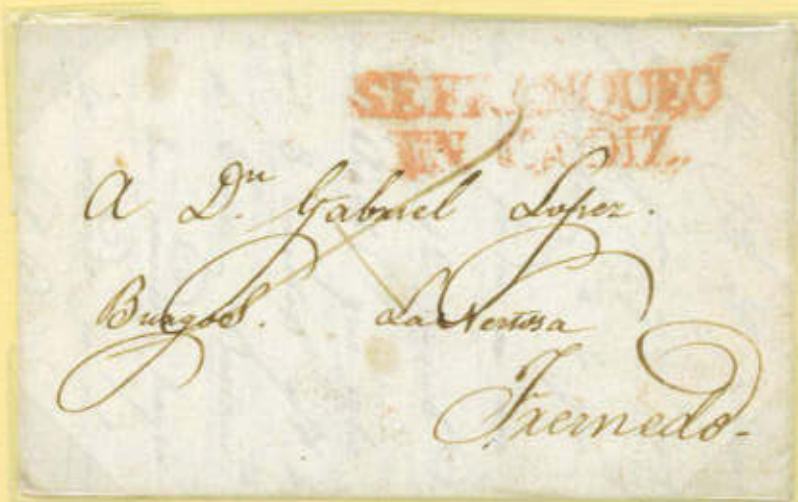 SE FRANQUEO
EN CADIZ.
A Dn. Gabriel Lopez.
Burgos. La Nestosa